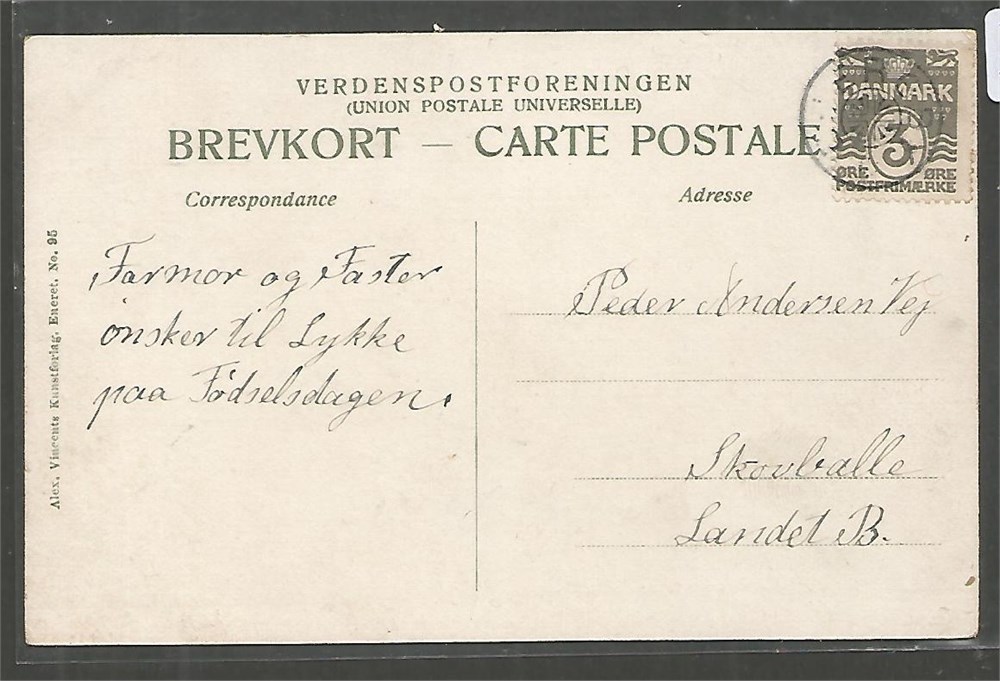 VERDENSPOSTFORENINGEN
(UNION POSTALE UNIVERSELLE)
BREVKORT — CARTE POSTALE
DANMARK
3
ØRE ØRE
POSTFRIMÆRKE
Correspondance
Adresse
Farmor og Faster
ønsker til Lykke
paa Fødselsdagen.
Peder Andersen Vej
Skovballe
Landet B.
Alex. Vincents Kunstforlag. Eneret. No. 95